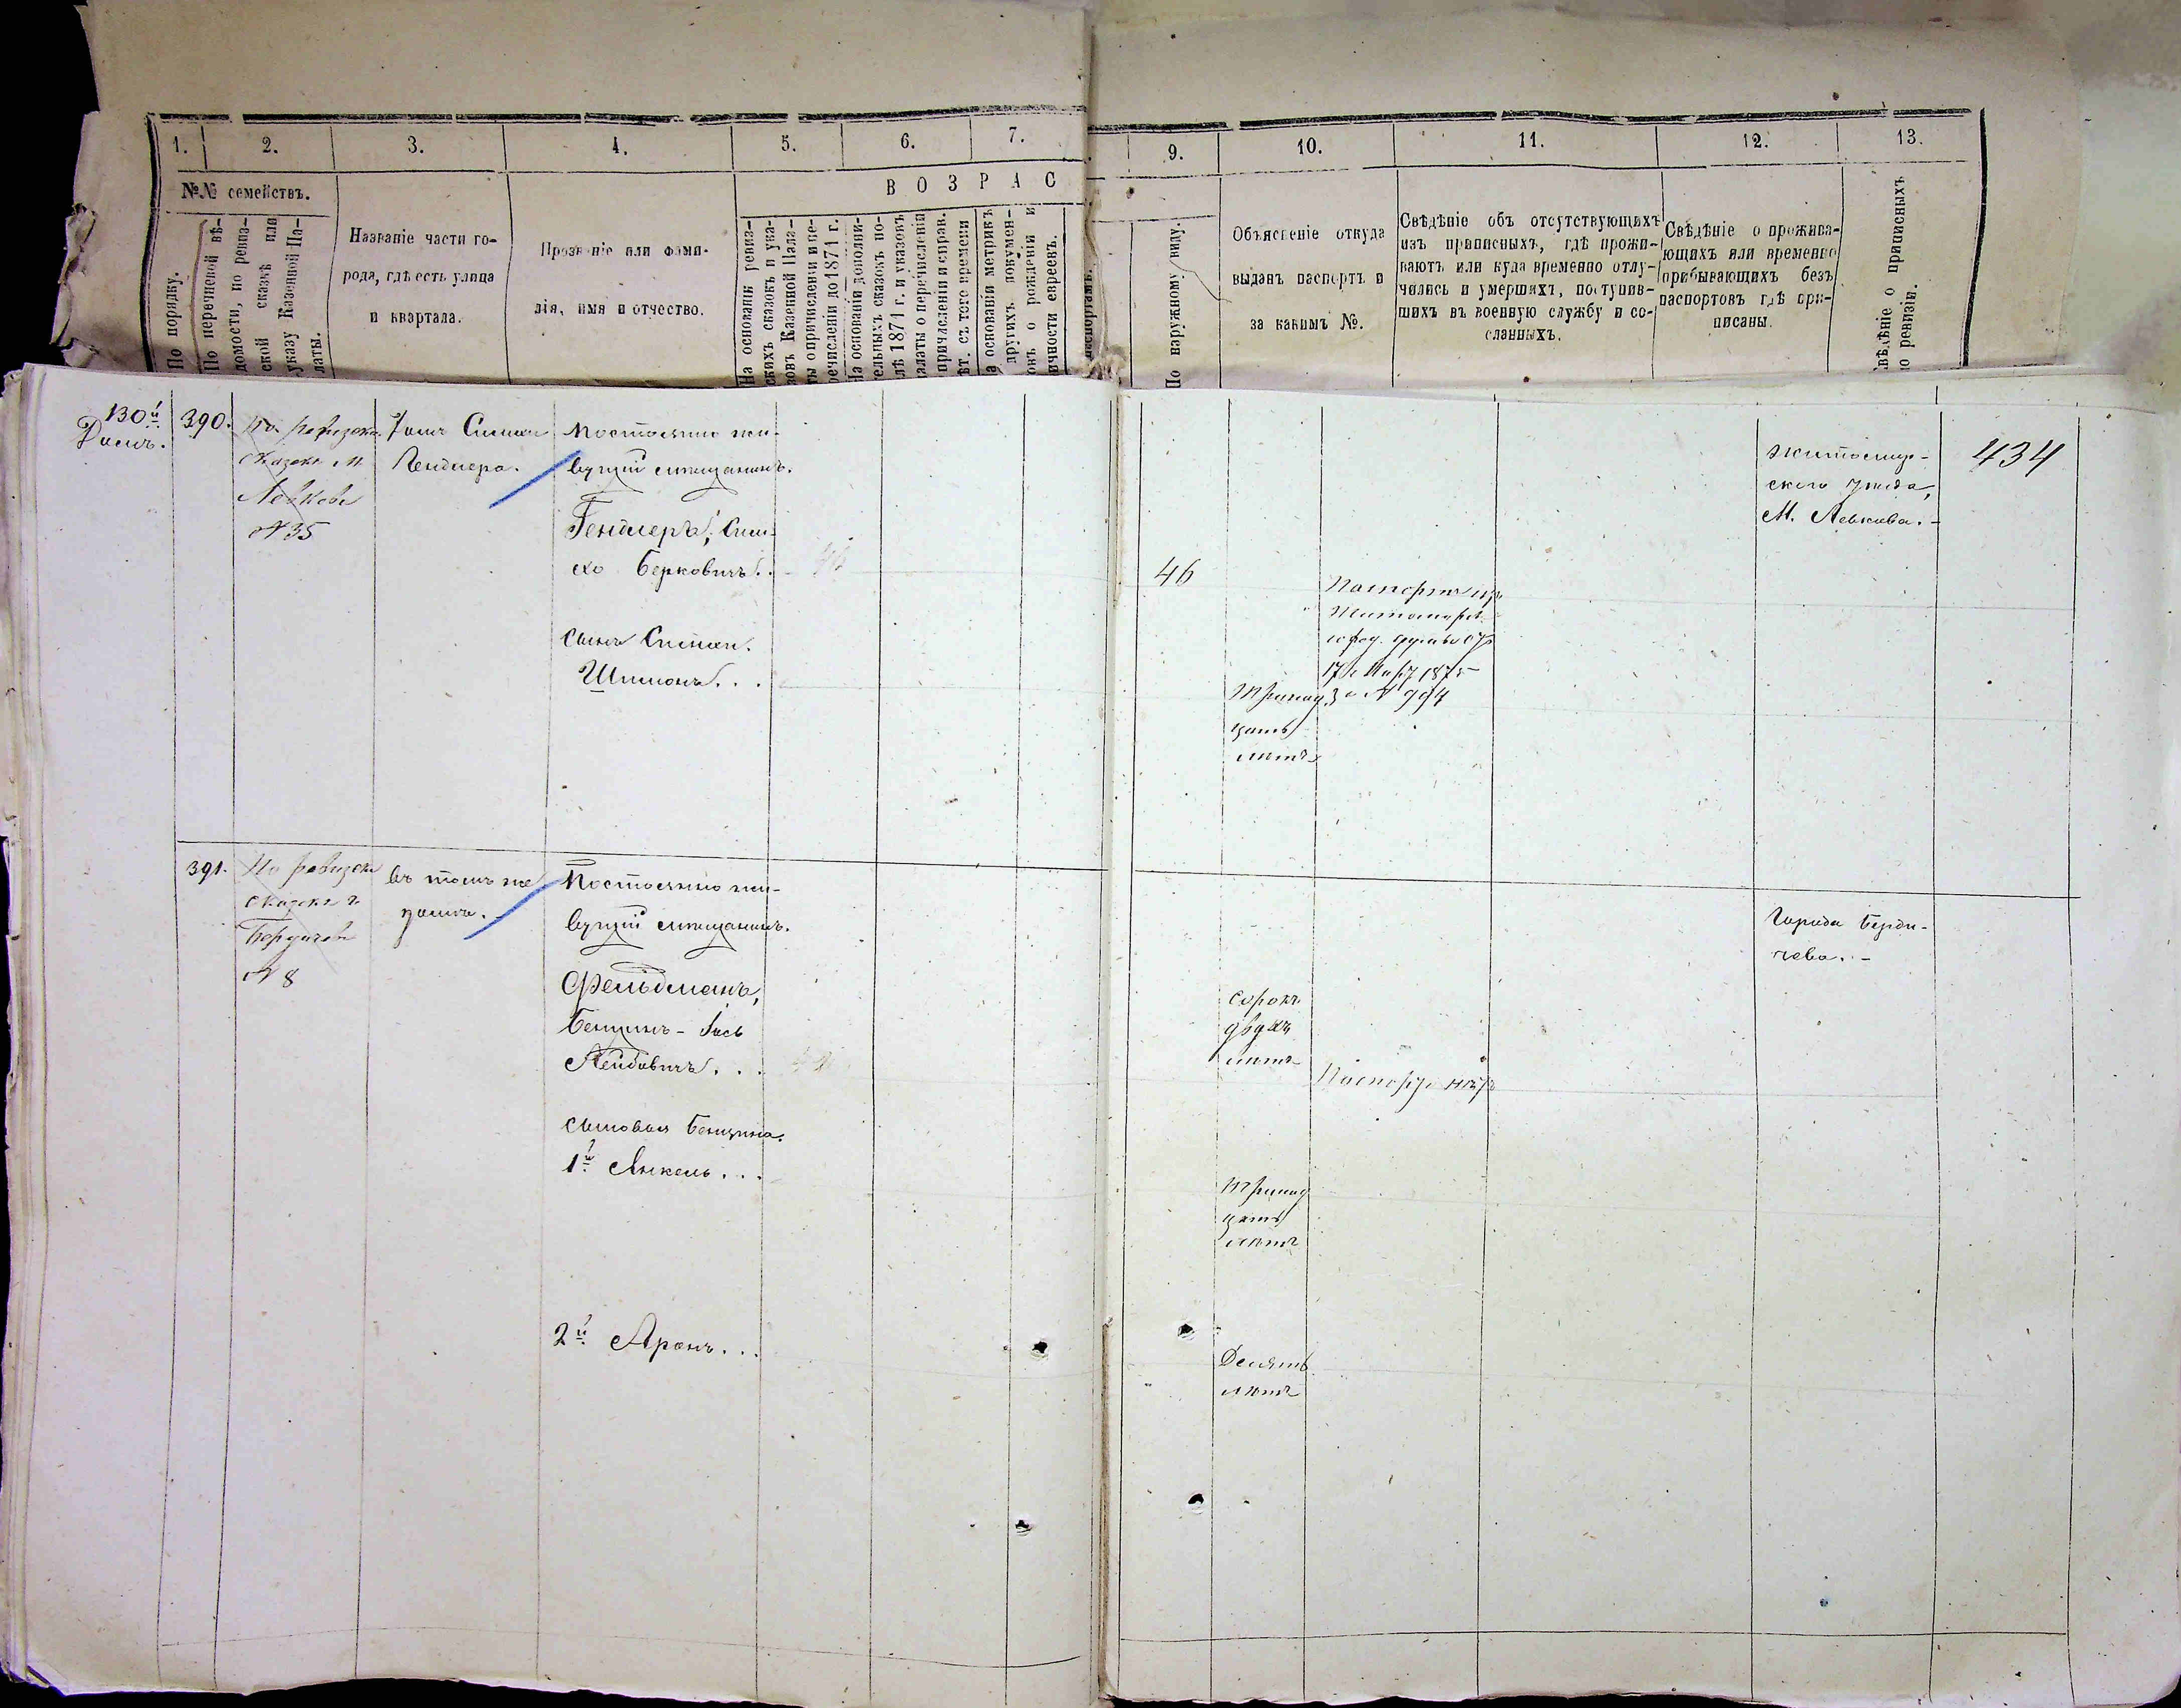 1.
2.
3.
4.
5.
6.
7.
9.
10.
11.
12.
13.
№№ семействъ.
По порядку.
По перечневой вѣ-
домости, по ревиз-
ской сказкѣ или
указу Казенной Па-
латы.
Названіе части го-
рода, гдѣ есть улица
и квартала.
Прозваніе или фами-
лія, имя и отчество.
ВОЗРАС
На основаніи ревиз-
скихъ сказокъ и ука-
зовъ Казенной Пала-
ты о причисленіи и пе-
речисленіи до 1871 г.
На основаніи дополни-
тельныхъ сказокъ по-
слѣ 1871 г. и указовъ
палаты о перечисленіи
причисленіи и справ.
лѣт. съ того времени
а основаніи метрикъ
другихъ докумен-
овъ о рожденіи и
личности евреекъ.
паспортамъ.
По наружному виду.
Объясненіе откуда
выданъ паспортъ и
за какимъ №.
Свѣдѣніе объ отсутствующихъ
изъ приписныхъ, гдѣ прожи-
ваютъ или куда временно отлу-
чились и умершихъ, поступив-
шихъ въ военную службу и со-
сланныхъ.
Свѣдѣніе о прожива-
ющихъ или временно
прибывающихъ безъ
паспортовъ гдѣ при-
писаны.
вѣдѣніе о приписныхъ
о ревизіи.
130й
Домъ.
390.
По ревизск.
сказкѣ М.
Левкова
№ 35
Домъ Симхи
Гендлера.
Постоянно жи-
вущій мѣщанинъ.
Гендлеръ, Сим-
хо Берковичъ. .
сынъ Симхи.
Шимонъ. . .
46
Тринад
цать
лѣтъ
Паспортъ изъ
Житомирск.
17 Мар. 1875
за № 994
Житомир-
скаго уѣзда,
М. Левкова. -
434
391.
По ревизск
сказкѣ г.
Бердичева
№ 8
въ томъ же
домѣ. -
Постоянно жи-
вущій мѣщанинъ.
Фельдманъ,
Бенціонъ - Іось
Лейбовичъ. . .
сыновья Бенціона.
1й Янкель. . .
2й Аронъ. . .
Сорокъ
двухъ
лѣтъ
Паспор. нѣтъ
Тринад
цать
лѣтъ
Десять
лѣтъ
Города Берди-
чева. -